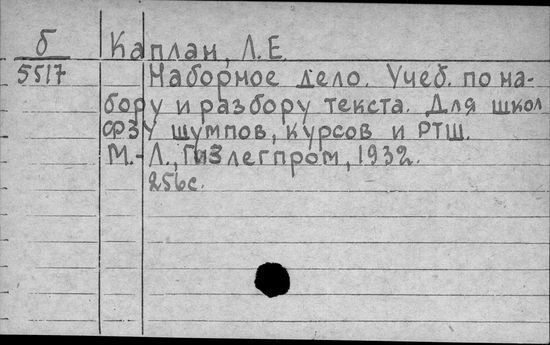 б
5517
Каплан, Л.Е.
Наборное дело. Учеб. по на-
бору и разбору текста. Для школ
ФЗУ шумпов, курсов и РТШ.
М.-Л., Гизлегпром, 1932.
256с.